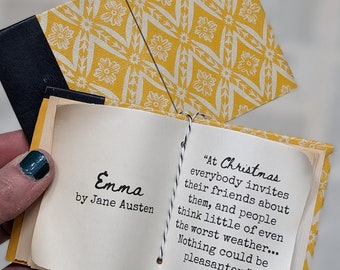 Emma
by Jane Austen
“At Christmas
everybody invites
their friends about
them, and people
think little of even
the worst weather...
Nothing could be
pleasanter